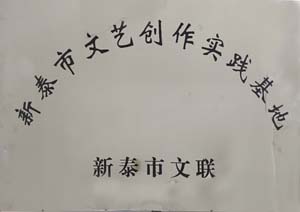 新泰市文艺创作实践基地
新泰市文联